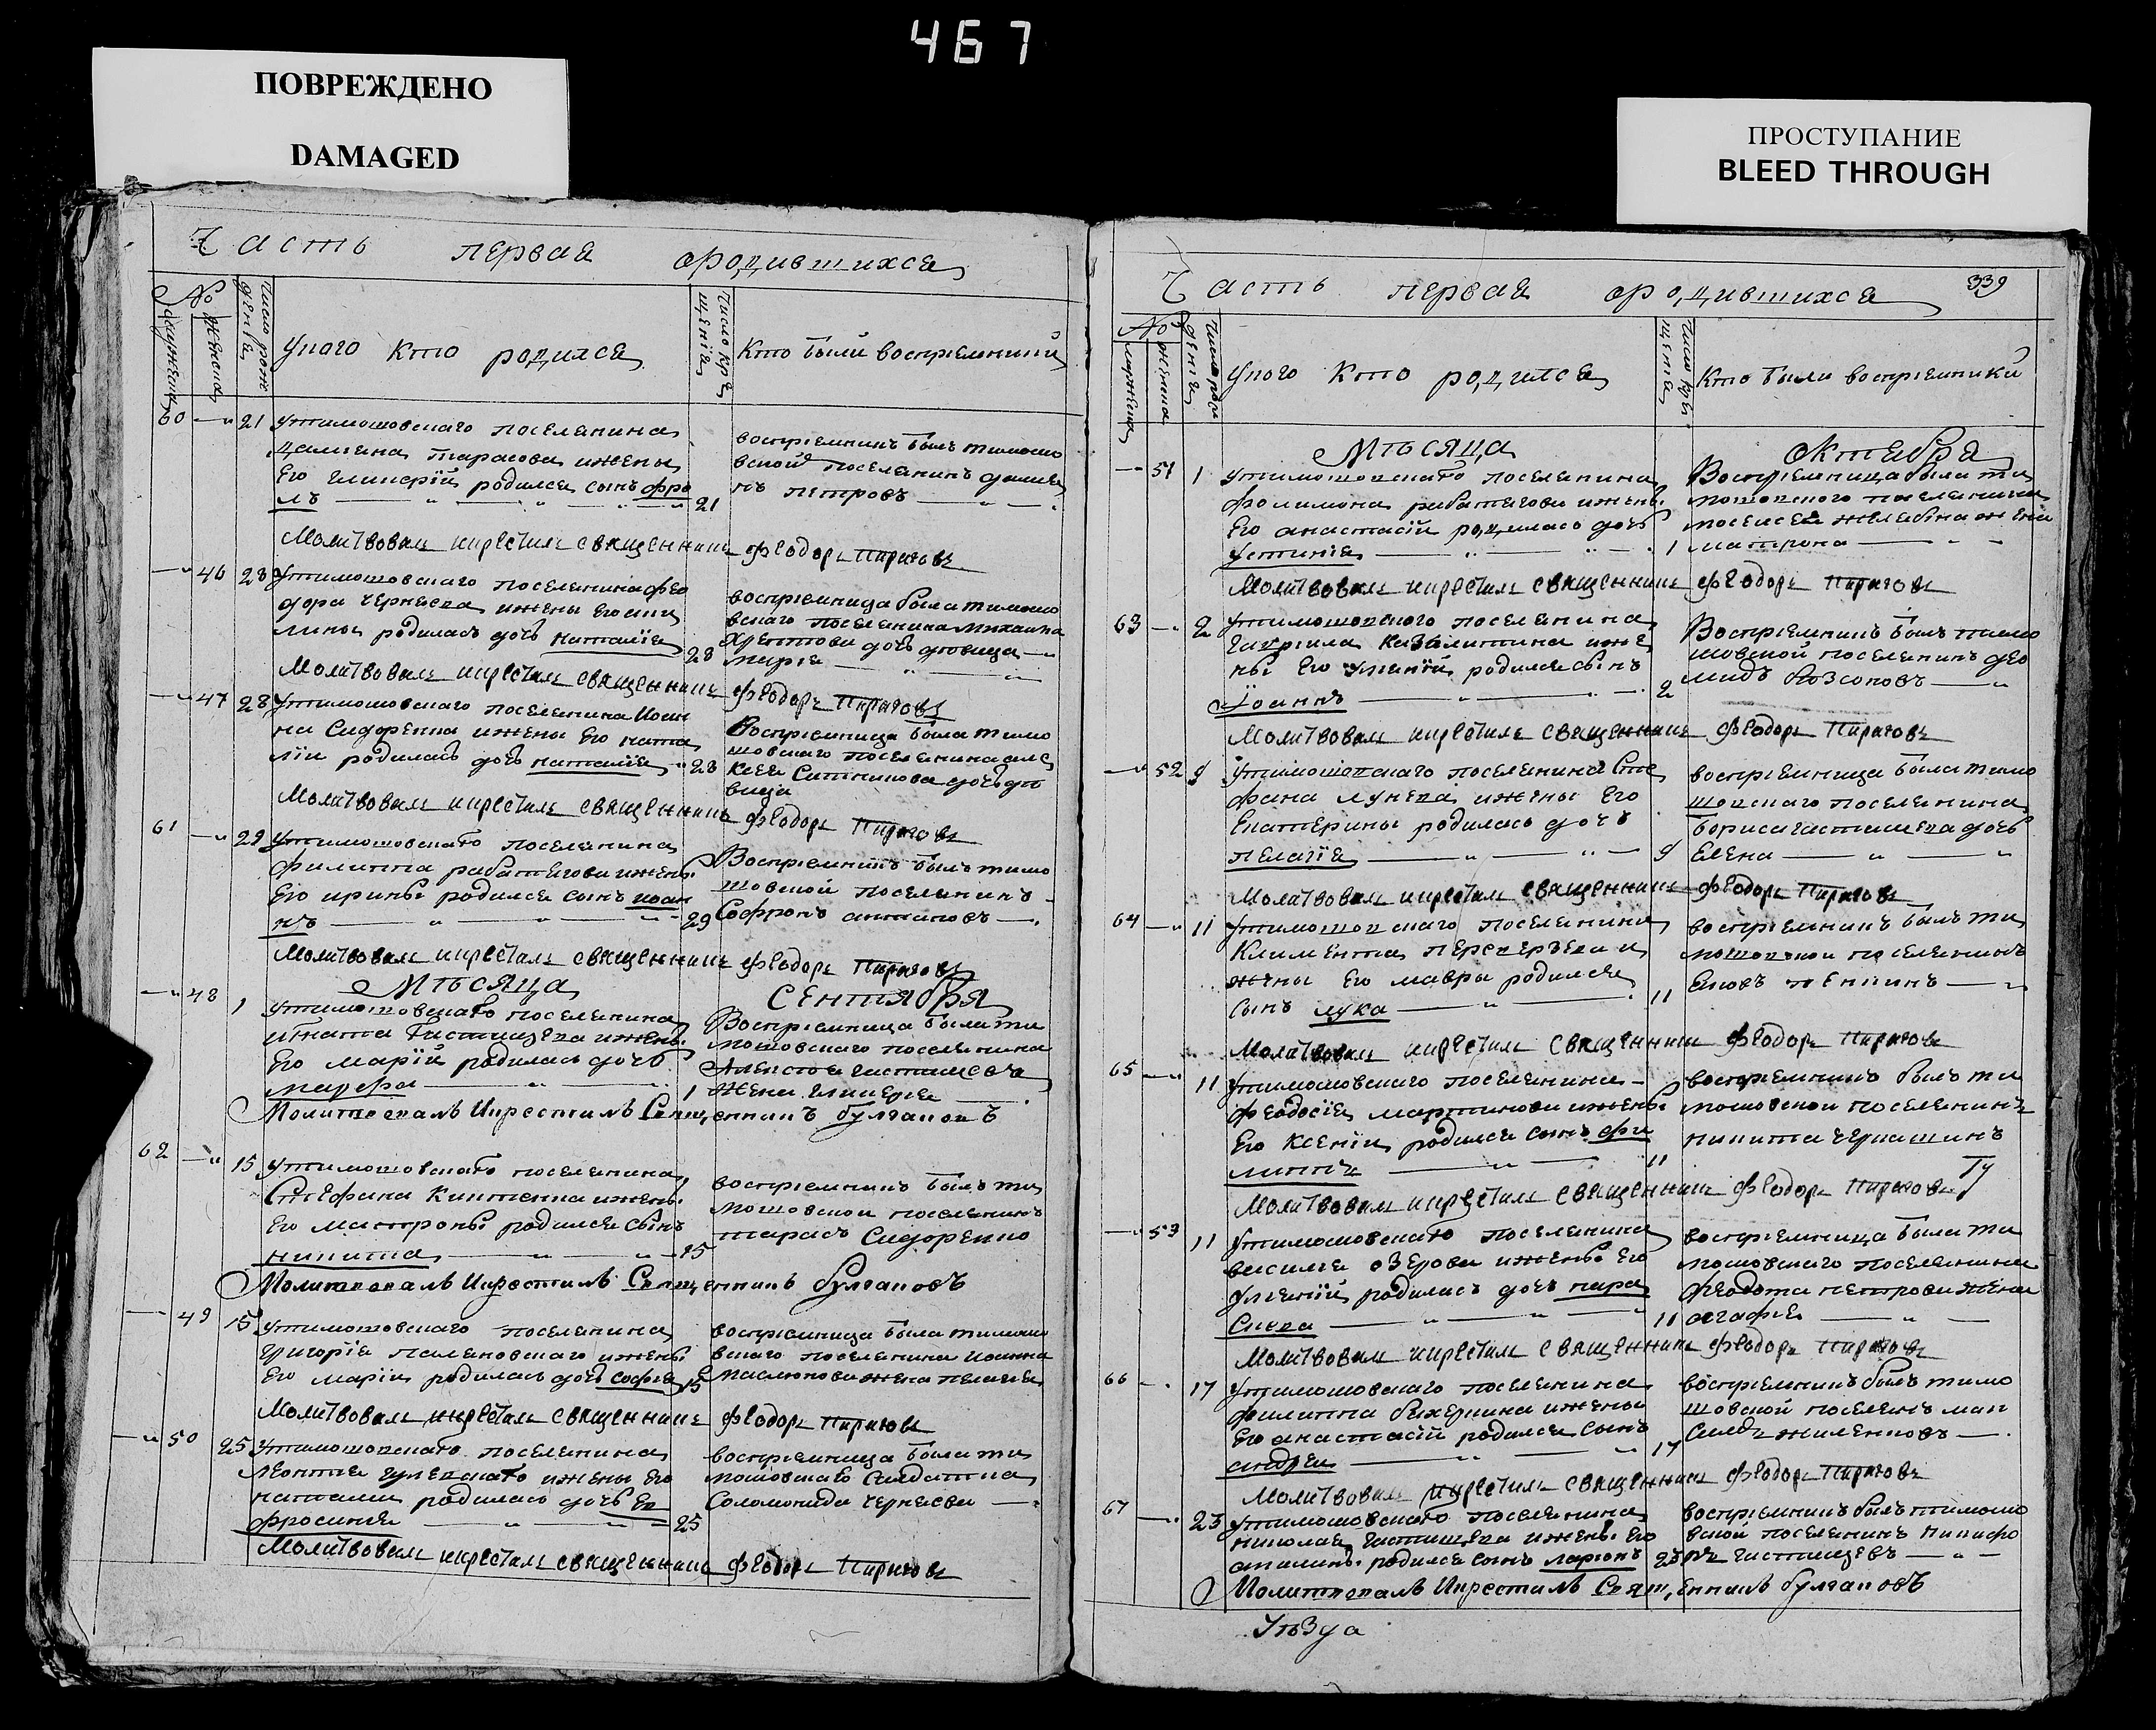 467
ПОВРЕЖДЕНО
DAMAGED
ПРОСТУПАНИЕ
BLEED THROUGH
Часть первая ородившихся
№
Число рож
денія
Женска
Унаго кто родился
Число кре
щенія
Кто были воспріемники
60 — " 21 Утимошовскаго поселянина
Тарасова ижены
Его Гликерій родился сынъ фро
лъ 21
воспріемникъ былъ тимошо
вской поселянинъ
нъ петровъ
Молитвовалъ икрестилъ священникъ Феодоръ Пираговъ
— " 46 28 Утимошовскаго поселенина фео
дора Чернаева ижены Его аки
лины родилась дочь наталія 28
воспріемница была тимошо
вскаго поселенина михаила
дочь девица
марія
Молитвовалъ икрестилъ священникъ Феодоръ Пираговъ
— " 47 28 Утимошовскаго поселенина Иоан
на Сидоренка ижены Его ната
ліи родилась дочь наталія 28
Воспріемница была тимо
шовскаго поселенина але
ксея Ситникова дочь де
вица
Молитвовалъ икрестилъ священникъ Феодоръ Пираговъ
61 — " 29 Утимошовскаго поселянина
филиппа рабатегова ижены
Его ирины родился сынъ иоан
нъ 29
Воспріемникъ былъ тимо
шовской поселянинъ
Софронъ антиповъ
Молитвовалъ икрестилъ священникъ Феодоръ Пираговъ
Мѣсяца Сентября
— " 48 1 Утимошовскаго поселянина
Игната Гистищева ижены
Его Марій родилась дочь
марфа 1
Воспріемница была ти
мошовскаго поселянина
Алексея гистищева
жена гликерія
Молитвовалъ Икрестилъ Священникъ булгаковъ
62 — " 15 Утимошовскаго поселянина
Стефана Книженка ижены
Его Матроны родился сынъ
никита 15
воспріемникъ былъ ти
мошовской поселянинъ
тарасъ Сидоренко
Молитвовалъ Икрестилъ Священникъ булгаковъ
— 49 15 Утимошовскаго поселянина
григорія ижены
Его Маріи родилась дочь софія 15
воспріемница была тимошо
вскаго поселянина иоанна
маслюкова жена пелагея
Молитвовалъ икрестилъ священникъ Феодоръ Пираговъ
— " 50 25 Утимошовскаго поселянина
Леонтія ижены Его
наталии родилась дочь Ев
фросинія 25
воспріемница была ти
мошовскаго Салдатка
Соломонида Чернаева
Молитвовалъ икрестилъ священникъ Феодоръ Пираговъ
Часть первая ородившихся 339
№
мужеска
женска
Число рож
денія
Унаго кто родился
Число кре
щенія
Кто были воспріемники
Мѣсяца октября
— 51 1 Утимошовскаго поселянина
филимона рабатегова ижены
Его анастасій родилась дочь
Устинія 1
Воспріемница была ти
мошовскаго поселянина
моисея желябина жена
матрона
Молитвовалъ икрестилъ священникъ Феодоръ Пираговъ
63 — " 2 Утимошовскаго поселянина
Гаврила Казалитина иже
ны Его родился сынъ
Іоаннъ 2
Воспріемникъ былъ тимо
шовской поселянинъ део
мидъ
Молитвовалъ икрестилъ священникъ Феодоръ Пираговъ
— " 52 9 Утимошовскаго поселянина Сте
фана лунева ижены Его
Екатерины родилась дочь
пелагія 9
воспріемница была тимо
шовскаго поселянина
Бориса гистищева дочь
Елена
Молитвовалъ икрестилъ священникъ Феодоръ Пираговъ
64 — " 11 Утимошовскаго поселянина
Климента и
жены Его мавры родился
сынъ лука 11
воспріемникъ былъ ти
мошовской поселянинъ
Яковъ
Молитвовалъ икрестилъ священникъ Феодоръ Пираговъ
65 — " 11 Утимошовскаго поселянина
феодосія мартинова ижены
Его Ксеніи родился сынъ фи
липпъ 11
воспріемникъ былъ ти
мошовской поселянинъ
никита Чернашинъ
Молитвовалъ икрестилъ священникъ Феодоръ Пираговъ
— " 53 11 Утимошовскаго поселянина
василія озерова ижены Его
родилась дочь пара
скева 11
воспріемница была ти
мошовскаго поселянина
феодота петрова жена
агафія
Молитвовалъ икрестилъ священникъ Феодоръ Пираговъ
66 — 17 Утимошовскаго поселянина
филиппа ижены
Его анастасій родился сынъ
андрей 17
воспріемникъ былъ тимо
шовской поселянинъ мак
симъ жиленковъ
Молитвовалъ икрестилъ священникъ Феодоръ Пираговъ
67 — " 23 Утимошовскаго поселянина
николая гистищева ижены Его
акилины родился сынъ ларіонъ 23
воспріемникъ былъ тимошо
вской поселянинъ никифо
ръ гистищевъ
Молитвовалъ Икрестилъ Священникъ булгаковъ
Уѣзда